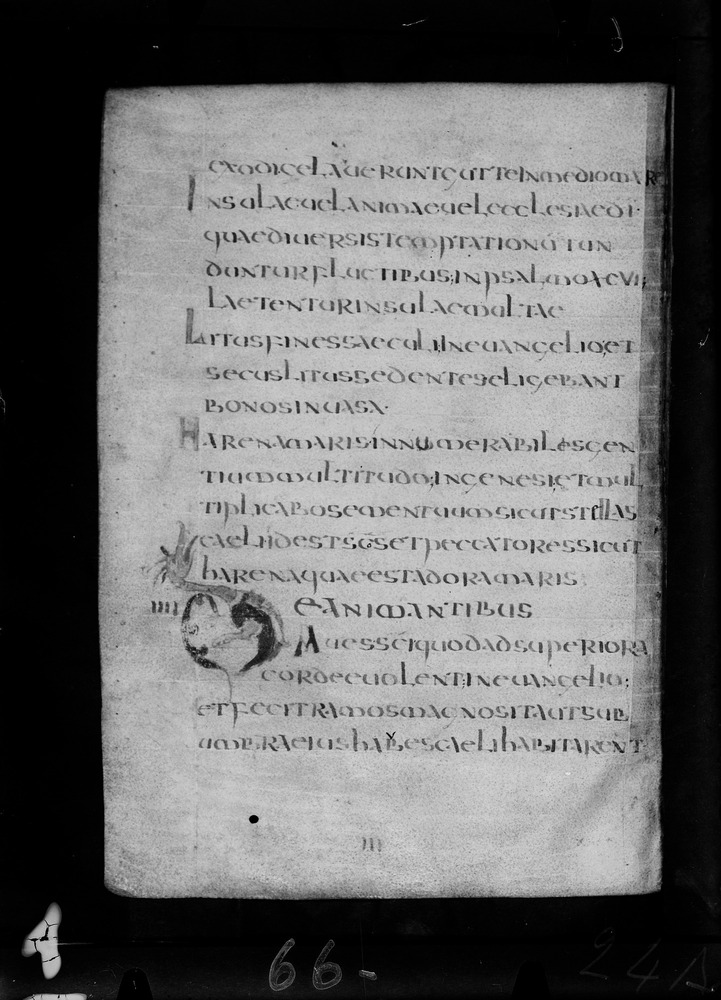 exodicelauerunteumteinmediomar
Insulaeuelanimaeuelecclesiaedi
quaediuersistemptationūtun
dunturfluctibus;inpsalmoxcvi;
laetenturinsulaemultae
Litusfinessaeculi;ineuangelio;et
secuslitussedenteseligebant
bonosinuasa·
Harenamarisinnumerabilesgen
tiummultitudo;ingenesi;etmul
tiplicabosementuumsicutstellas
caeli;idestsc̄ōsetpeccatoressicut
harenaquaeestadoramaris;
IIII DeANIMANTIBUS
Auessc̄iquodadsuperiora
cordeeuolent;ineuangelio;
etfecitramosmagnositautsub
umbraeiushabescaelihabitarent
III
66-
24A